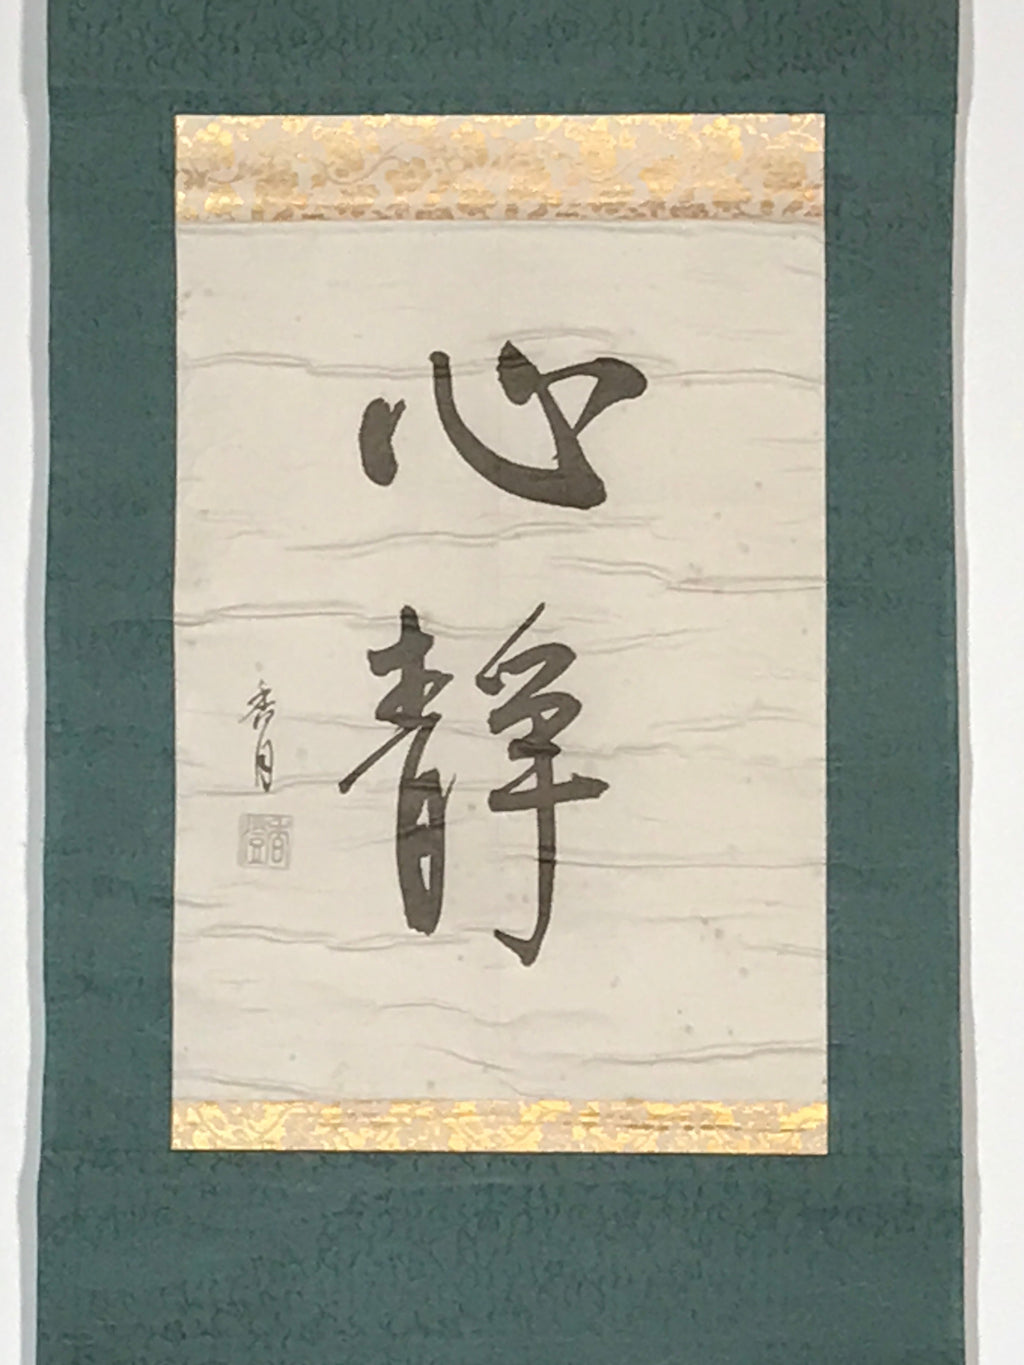 心静
香月